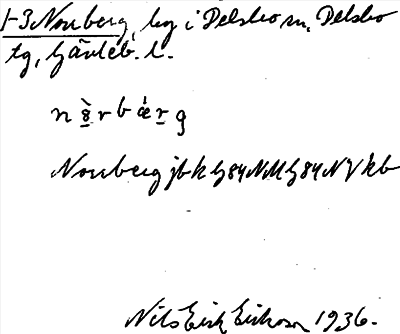 1-3 Norrberg, by i Delsbo sn, Delsbo
tg, Gävleb. l.
Norrberg jbk G84NM G84NV kb
Nils Erik Eriksson 1936.